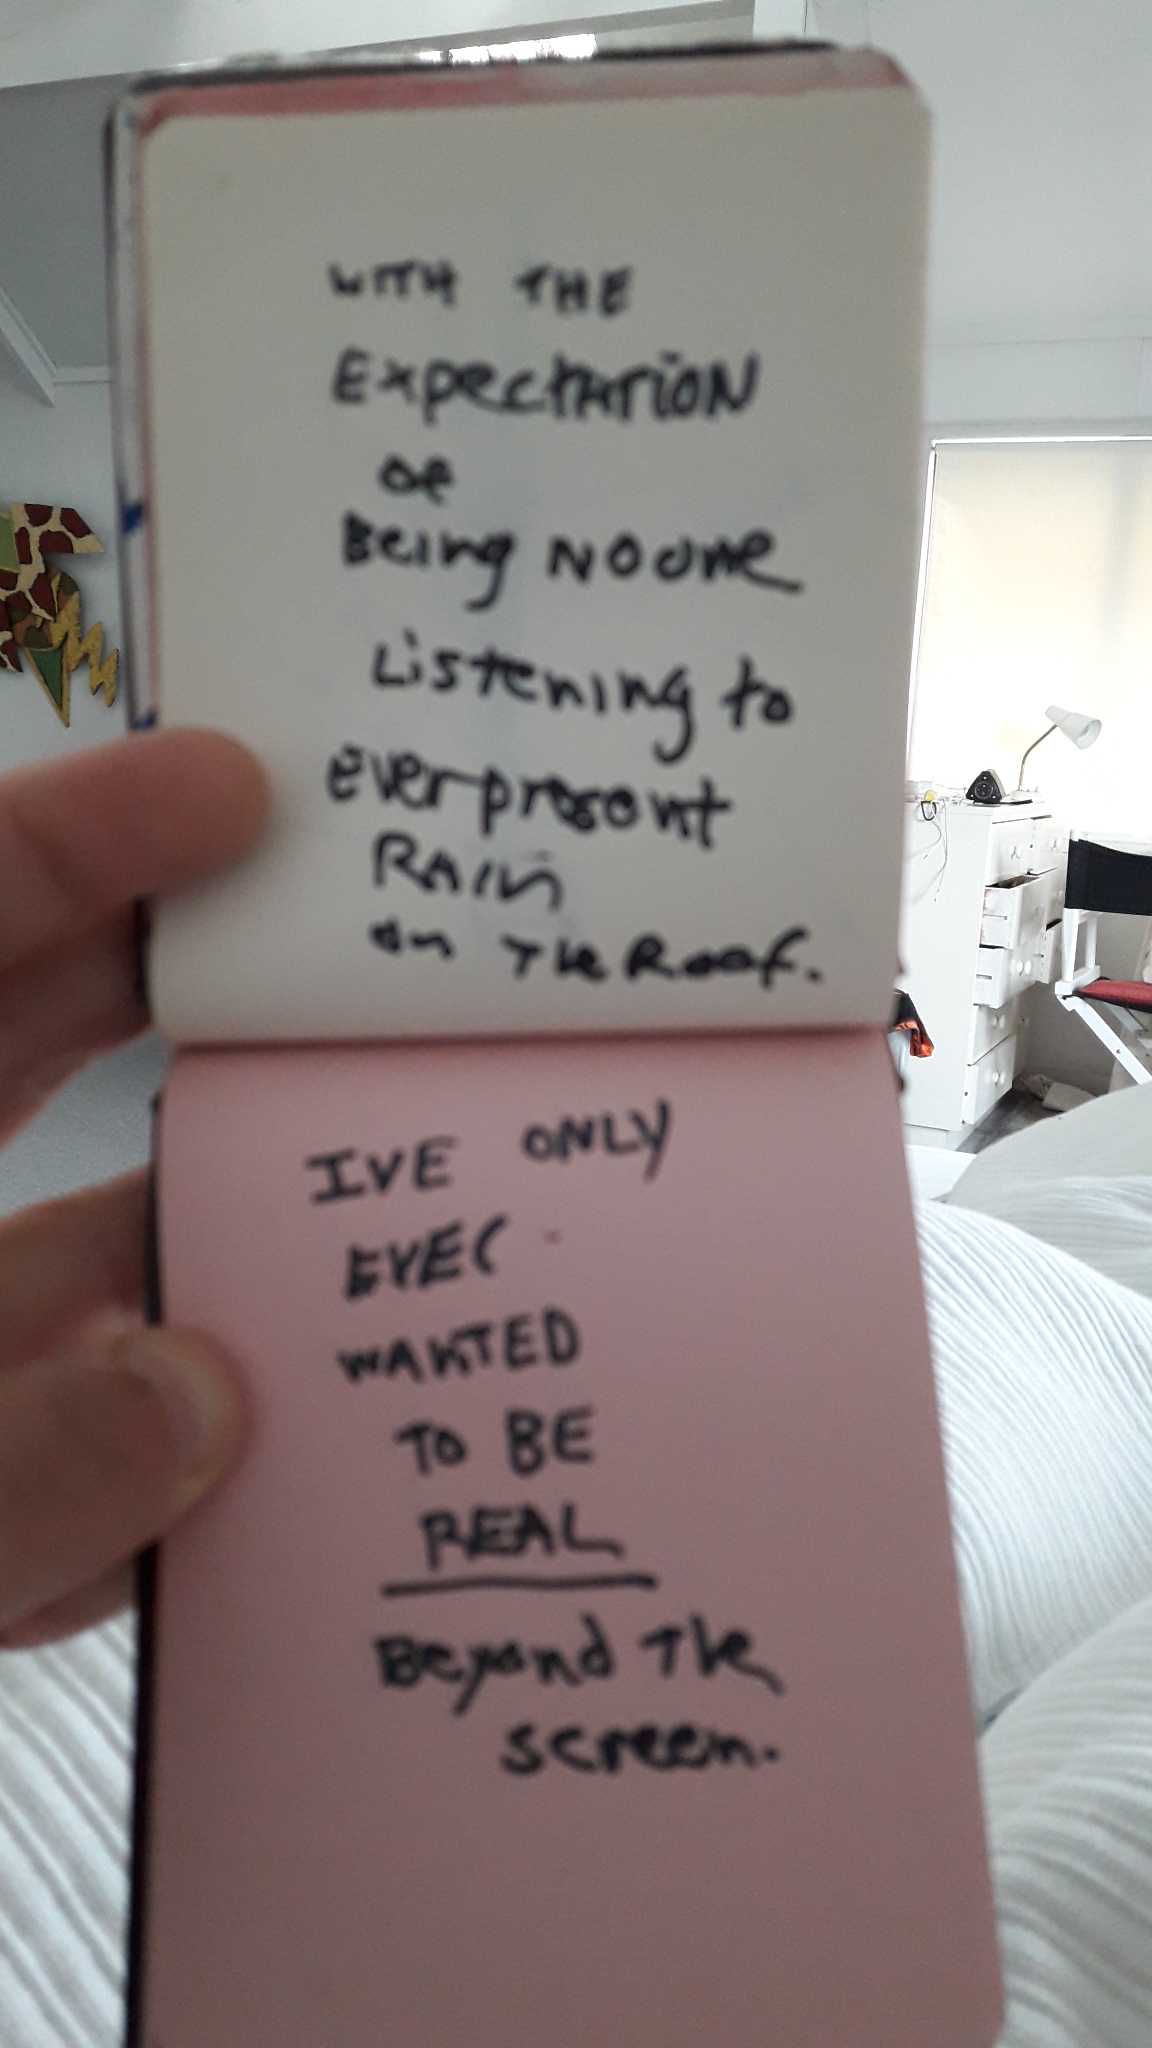 WITH THE
ExpectATiON
OF
Being NO one
Listening to
Ever present
RAin
on The Roof.
IVE ONLY
EVEr
WANTED
TO BE
REAL
Beyond The
screen.